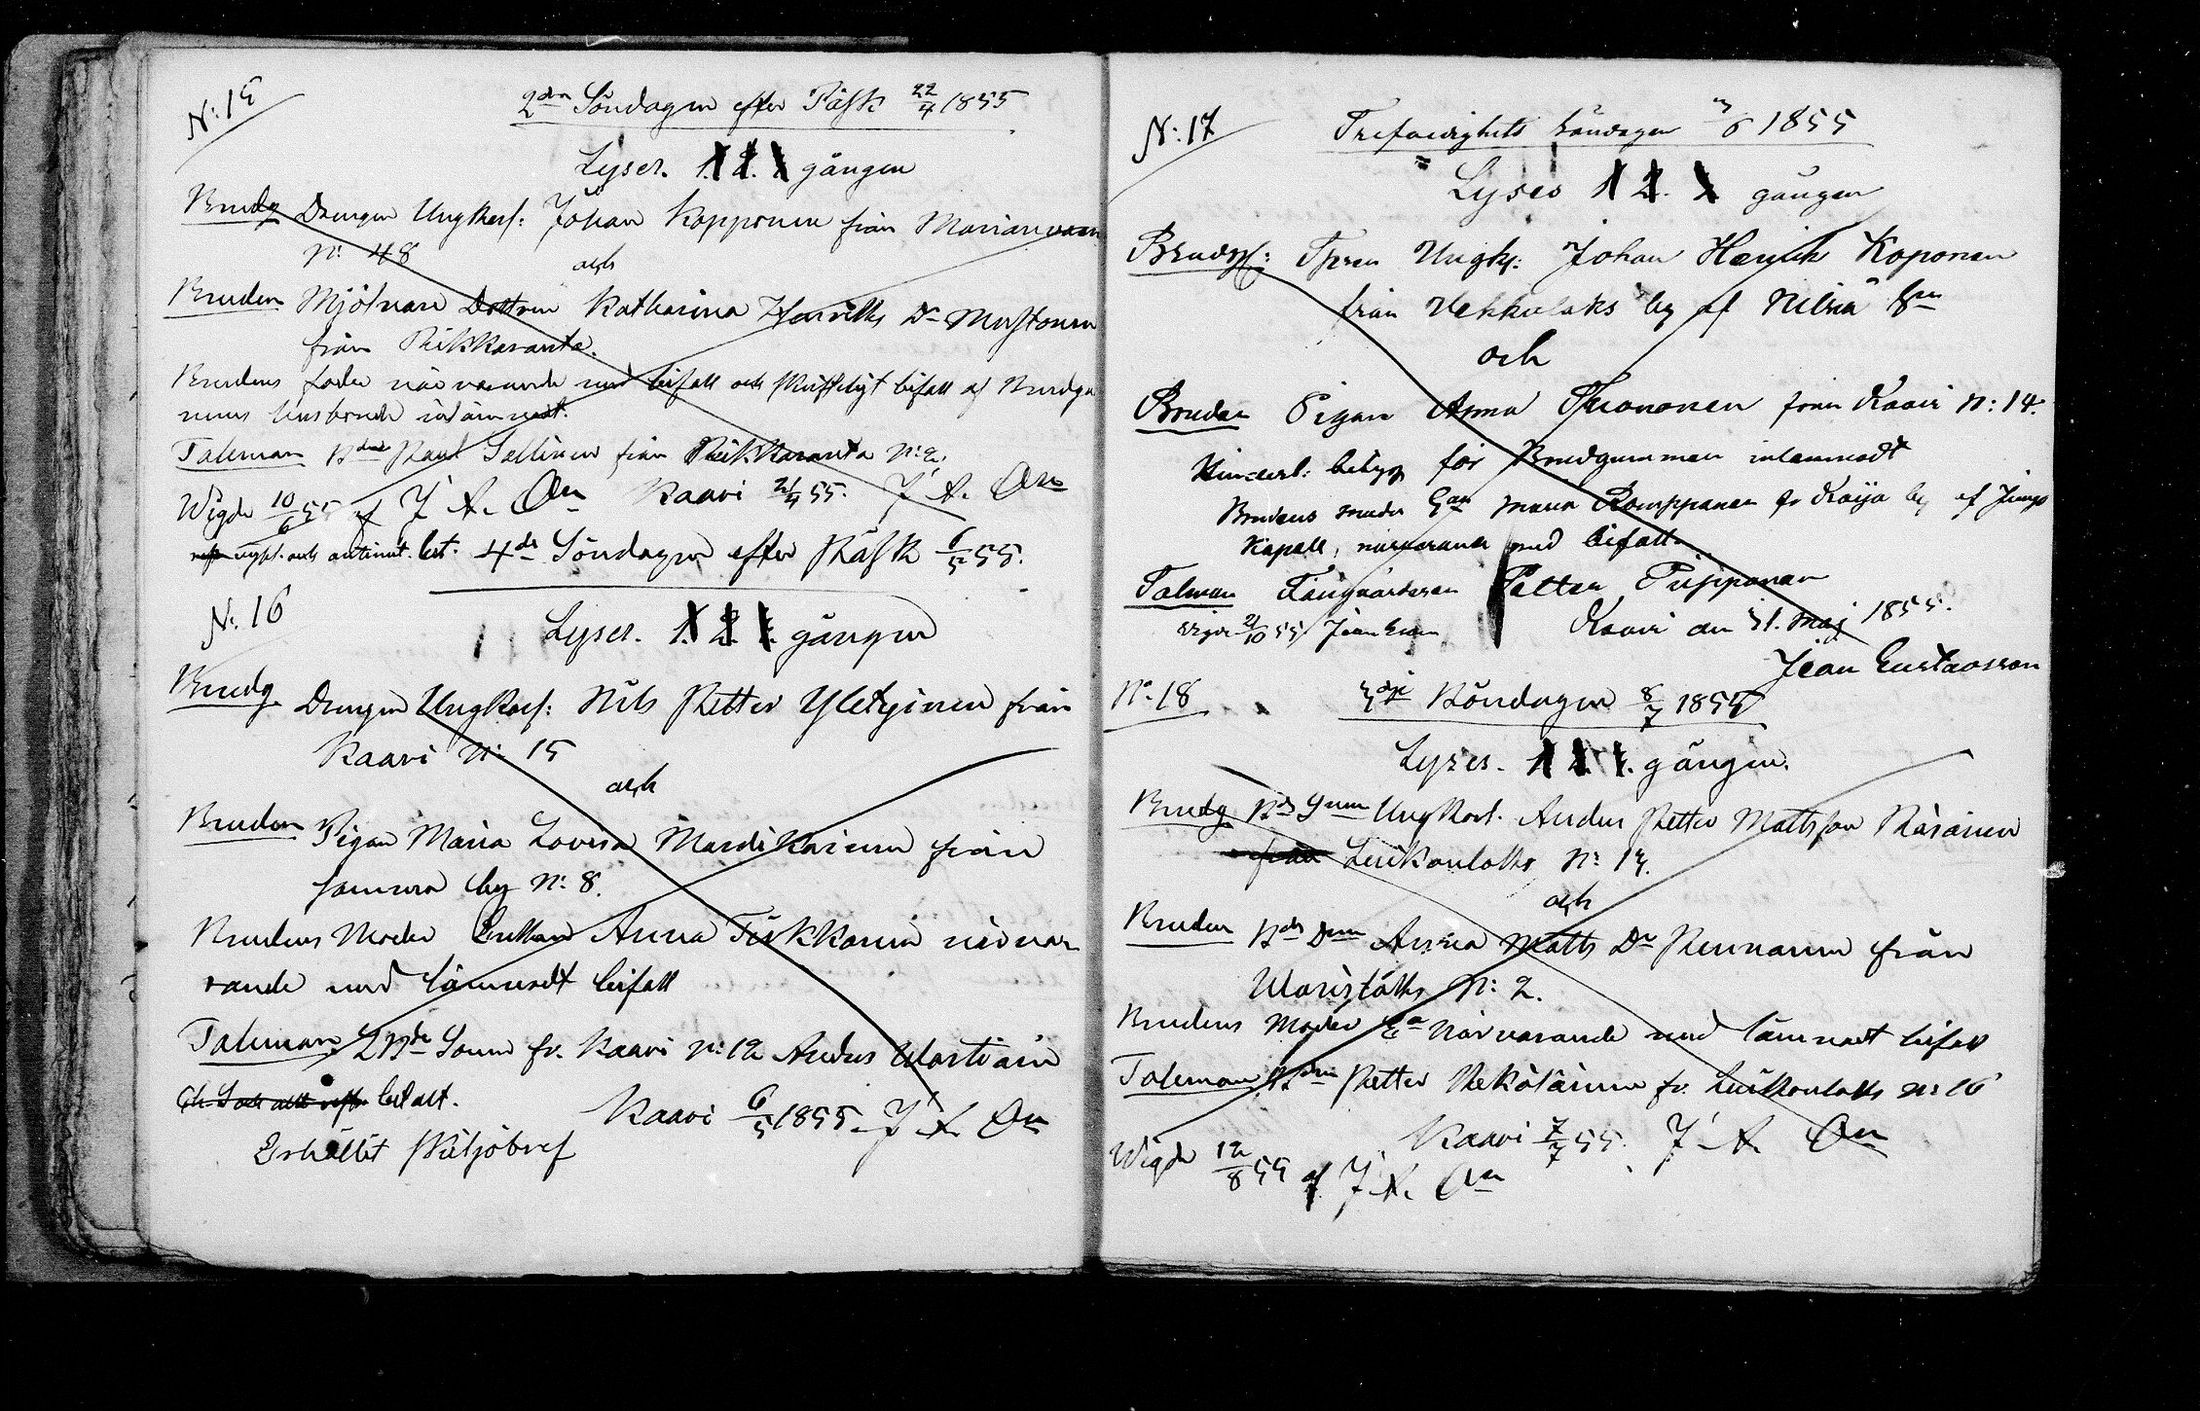 N: 15
2dra Söndagen efter Påsk 22/4 1855
Lyses. 1. 2. gången
Brudg Drengen Ungkarl: Johan Kopponen från
N: 48
och
Bruden Mjölnare Dottren Katharina Henriks Dr Mustonen
från Rikkaranta.
Brudens fader närvarande med bifall och skriftligt bifall af Brudgu
mens husbonde inlämnat.
Taleman Bdn Paul Sallinen från Rikkaranta N: 2.
Wigde 10/6 55 af J. A. On Kaavi 21/4 55. J. A. On
4de Söndagen efter Påsk 6/5 55.
N: 16
Lyses. 1. 2. gången
Brudg. Drengen Ungkarl: Nils Petter från
Kaavi N: 15
och
Bruden Pigan Maria Lovisa Mardikainen från
by N: 8.
Brudens Moder Enkan Anna Tirkkonen närva-
rande med lämnadt bifall
Taleman fr. Kaavi N: 12 Anders Wartiain
betalt.
Kaavi 6/5 1855. J. A. On
Erhållit skiljobref
N: 17
Trefaldighets Söndagen 3/6 1855
Lyses 1 2. gången
Brudg: Ungk: Johan Henrik Koponen
från Vehkalaks by af Nilsiä Sn
och
Bruden Pigan Anna Thononen från Kaavi N: 14.
betyg för Brudgummen inlemnadt
Brudens moder Maria Romppanen fr Kojo by af
Kapell, närvarande med bifall.
Talman Fångvårdaren Petter Pirppanen
21/10 55 Kaavi den 31. Maj 1855.
Jean Gustavsson
N: 18
Söndagen 8/7 1855
Lyses. 1 2. gången.
Brudg Bds Sonen Ungkarl. Anders Petter Mattsson Räsänen
från Luikonlaks N: 13.
och
Bruden Bds Dn Anna Matts Dr Pennanen från
Warislaks N: 2.
Brudens Moder Ea Närvarande med lämnadt bifall
Taleman Bdn Petter fr. Luikonlaks N: 16
Kaavi 7/7 55. J. A. On
Wigde 12/8 55 af J. A. On